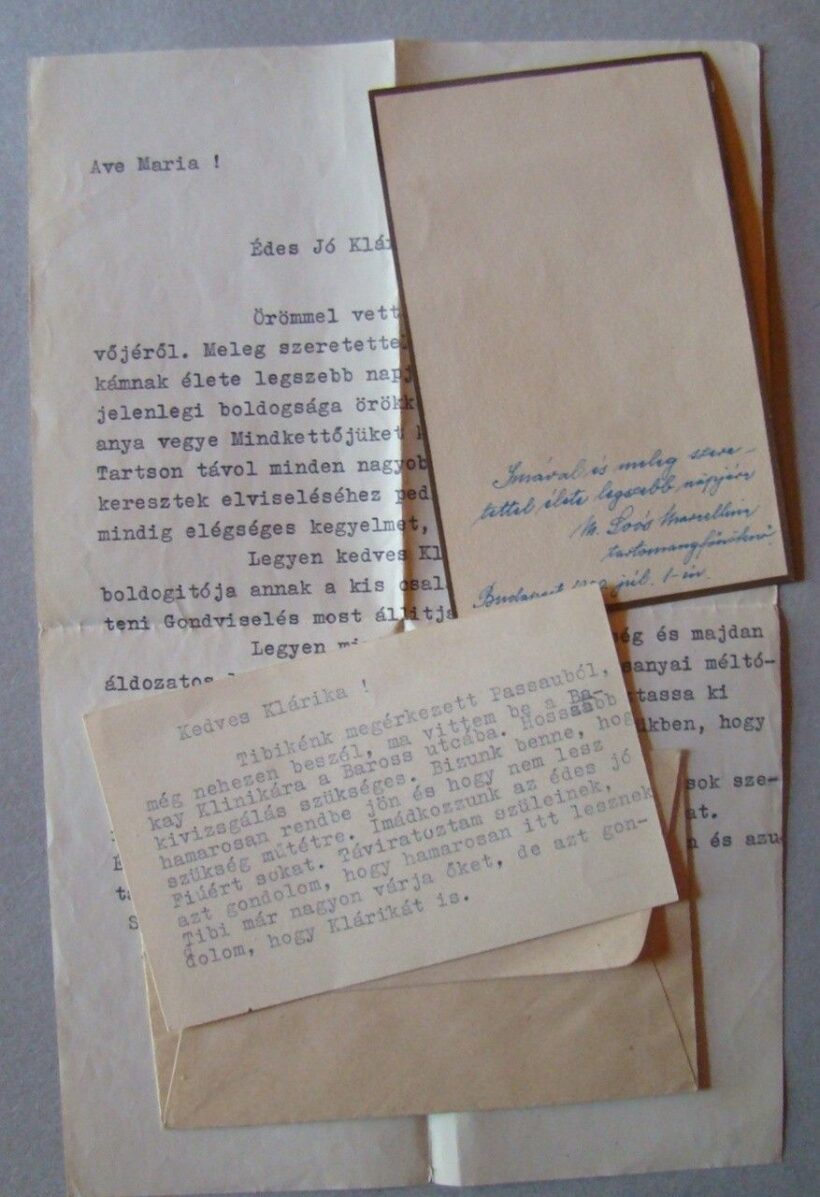 Ave Maria !
Édes Jó Klári
Örömmel vett
vőjéről. Meleg szeretettel
kámnak élete legszebb napj
jelenlegi boldogsága örökk
anya vegye Mindkettőjüket
Tartson távol minden nagyob
keresztek elviseléséhez ped
mindig elégséges kegyelmet,
Legyen kedves Kl
boldogitója annak a kis csalá
teni Gondviselés most állitja
Legyen
áldozatos
ég és majdan
sanyai méltó-
tassa ki
ükben, hogy
sok sze-
at.
n és azu
Imával és meleg szere-
tettel élete legszebb napjára
M. Loós Marcellin
tartományfőnöknő.
Budapest júl. 1-én.
Kedves Klárika !
Tibikénk megérkezett Passauból,
még nehezen beszél, ma vittem be a Ba-
kay Klinikára a Baross utcába. Hosszabb
kivizsgálás szükséges. Bizunk benne, hogy
hamarosan rendbe jön és hogy nem lesz
szükség műtétre. Imádkozzunk az édes jó
Fiúért sokat. Táviratoztam szüleinek,
azt gondolom, hogy hamarosan itt lesznek
Tibi már nagyon várja őket, de azt gon-
dolom, hogy Klárikát is.